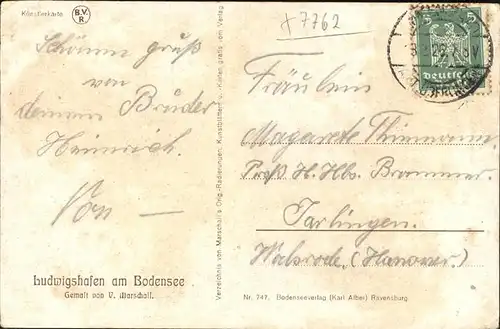 Künstlerkarte
B.V.
R
+ 7762
5 5
Deutsches
Schönen Gruß
von
deinem Bruder
Heinrich.
Von —
Ludwigshafen am Bodensee
Gemalt von V. Marschall.
Verzeichnis von Marschall's Orig.-Radierungen, Kunstblättern u. -Karten grat. vom Verlag
Fräulein
Magarete Thiemann
H. Hbs. Brammer
Jarlingen.
Walsrode (Hanover)
Nr. 747. Bodenseeverlag (Karl Alber) Ravensburg